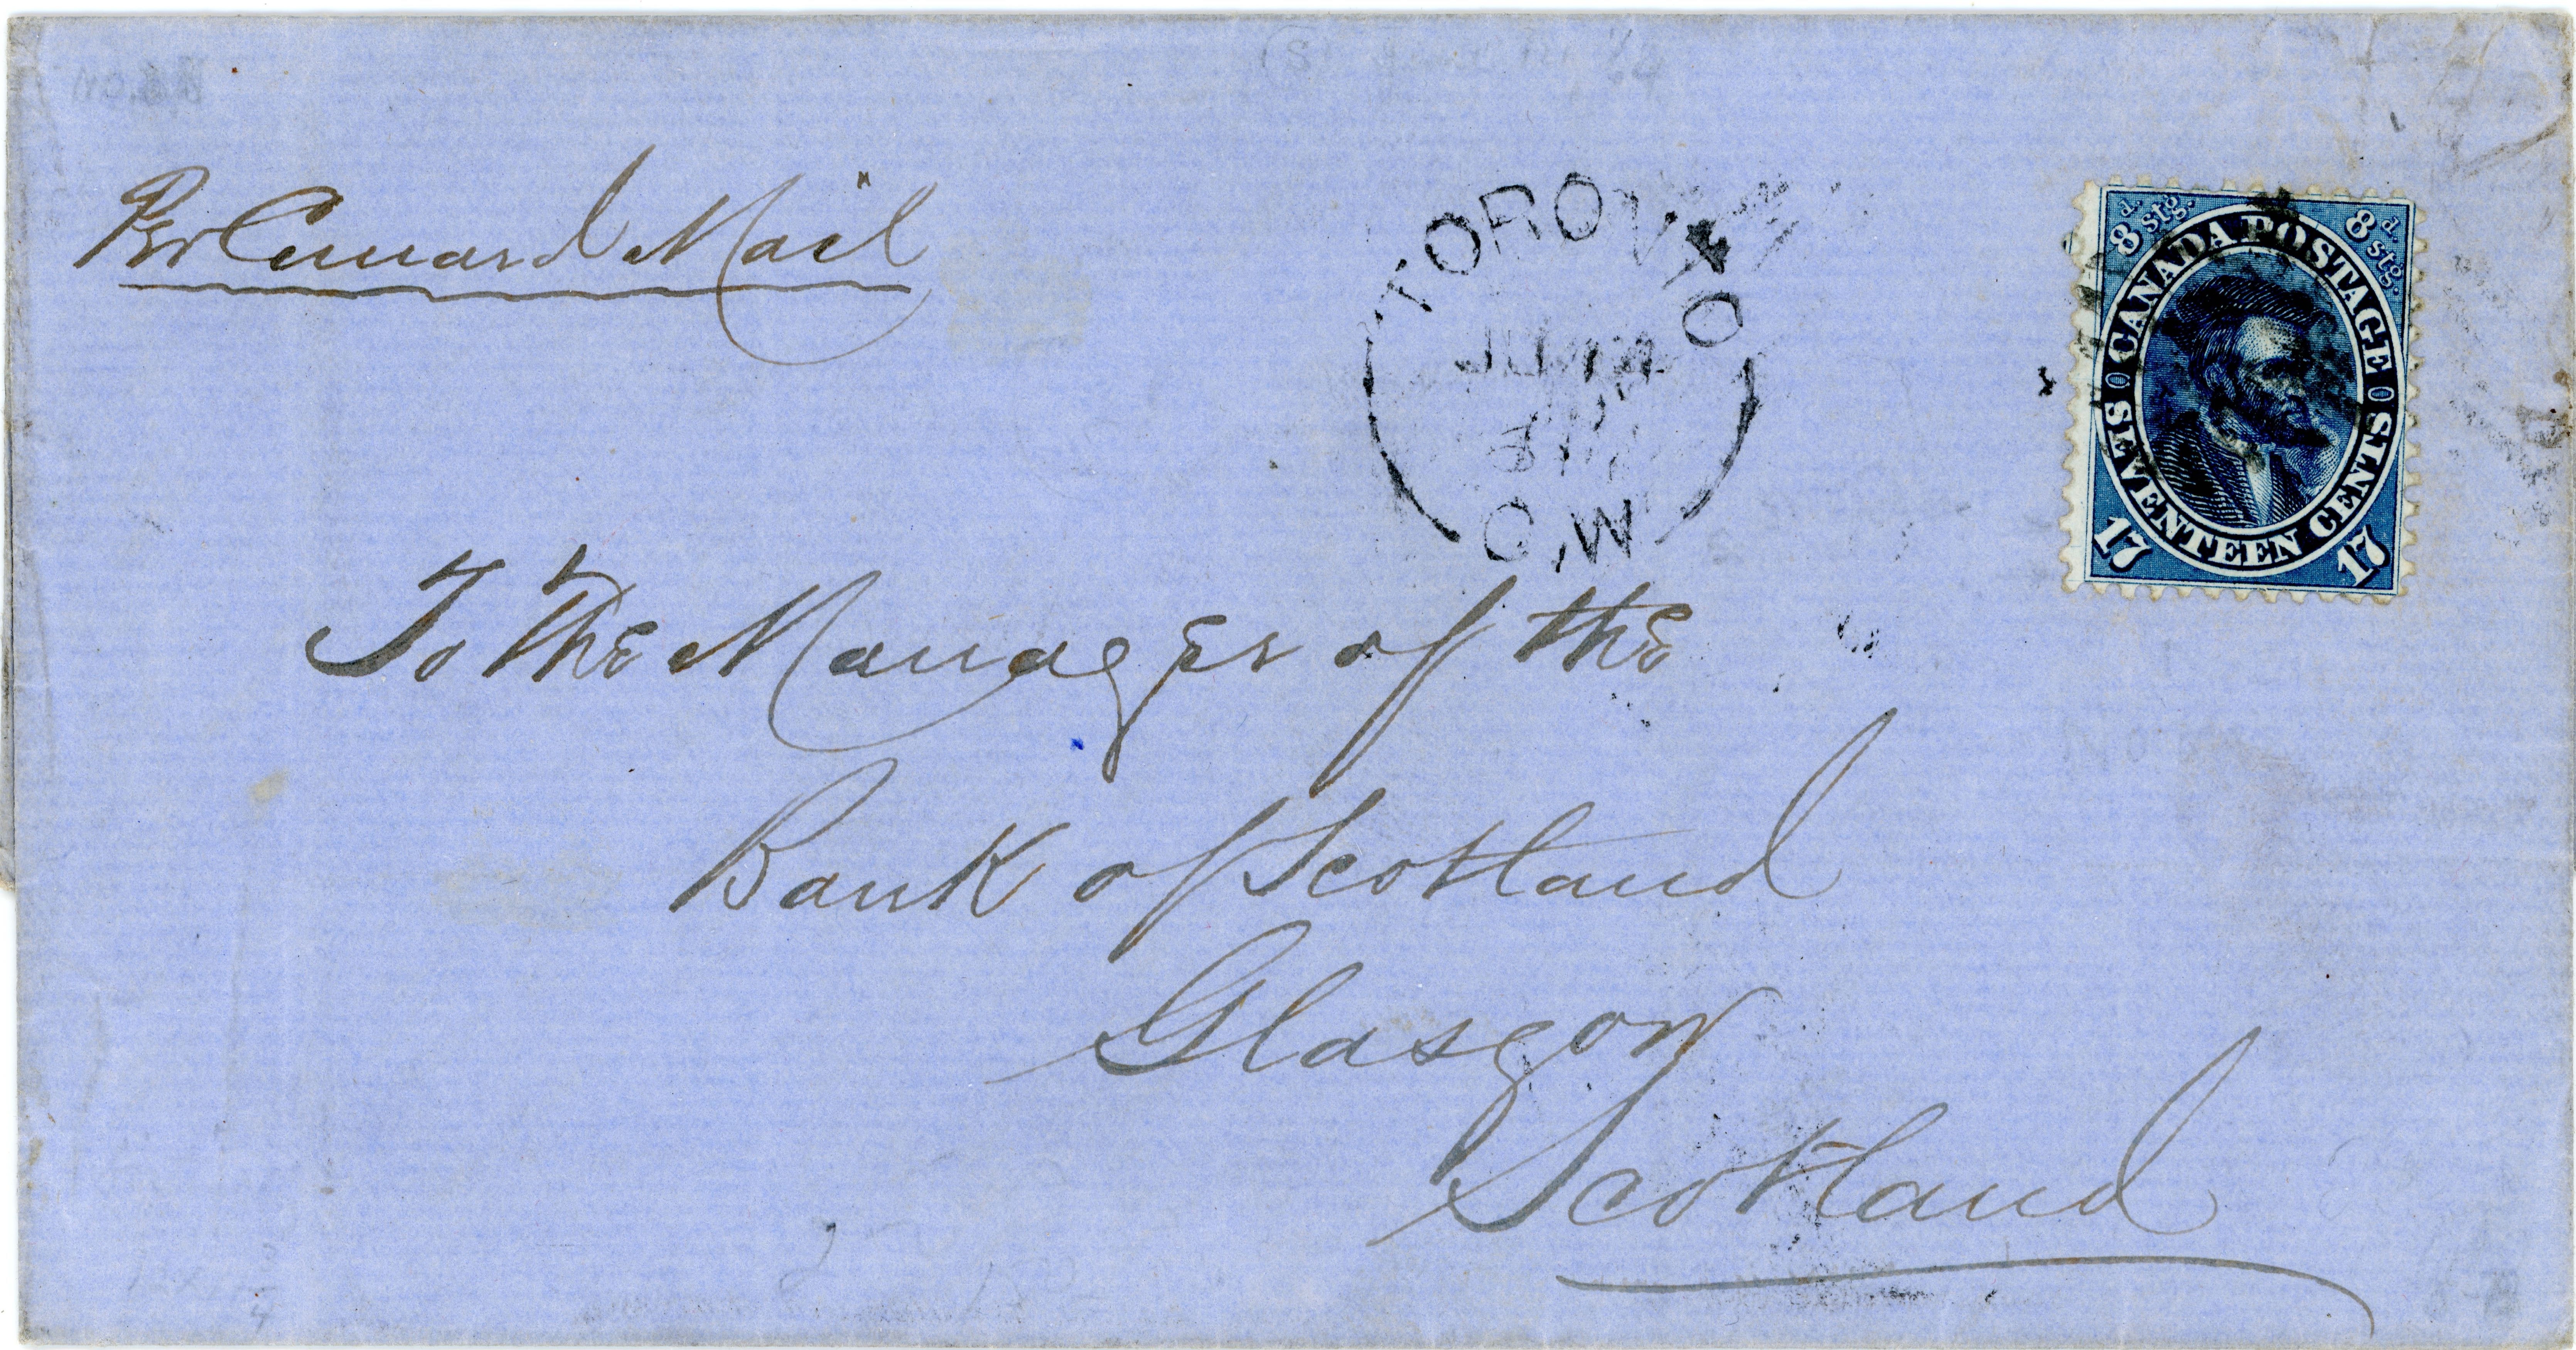 Per Cunard Mail
TORONTO
C.W
8d. stg. 8d. stg.
CANADA POSTAGE
SEVENTEEN CENTS
17 17
To the Manager of the
Bank of Scotland
Glasgow
Scotland